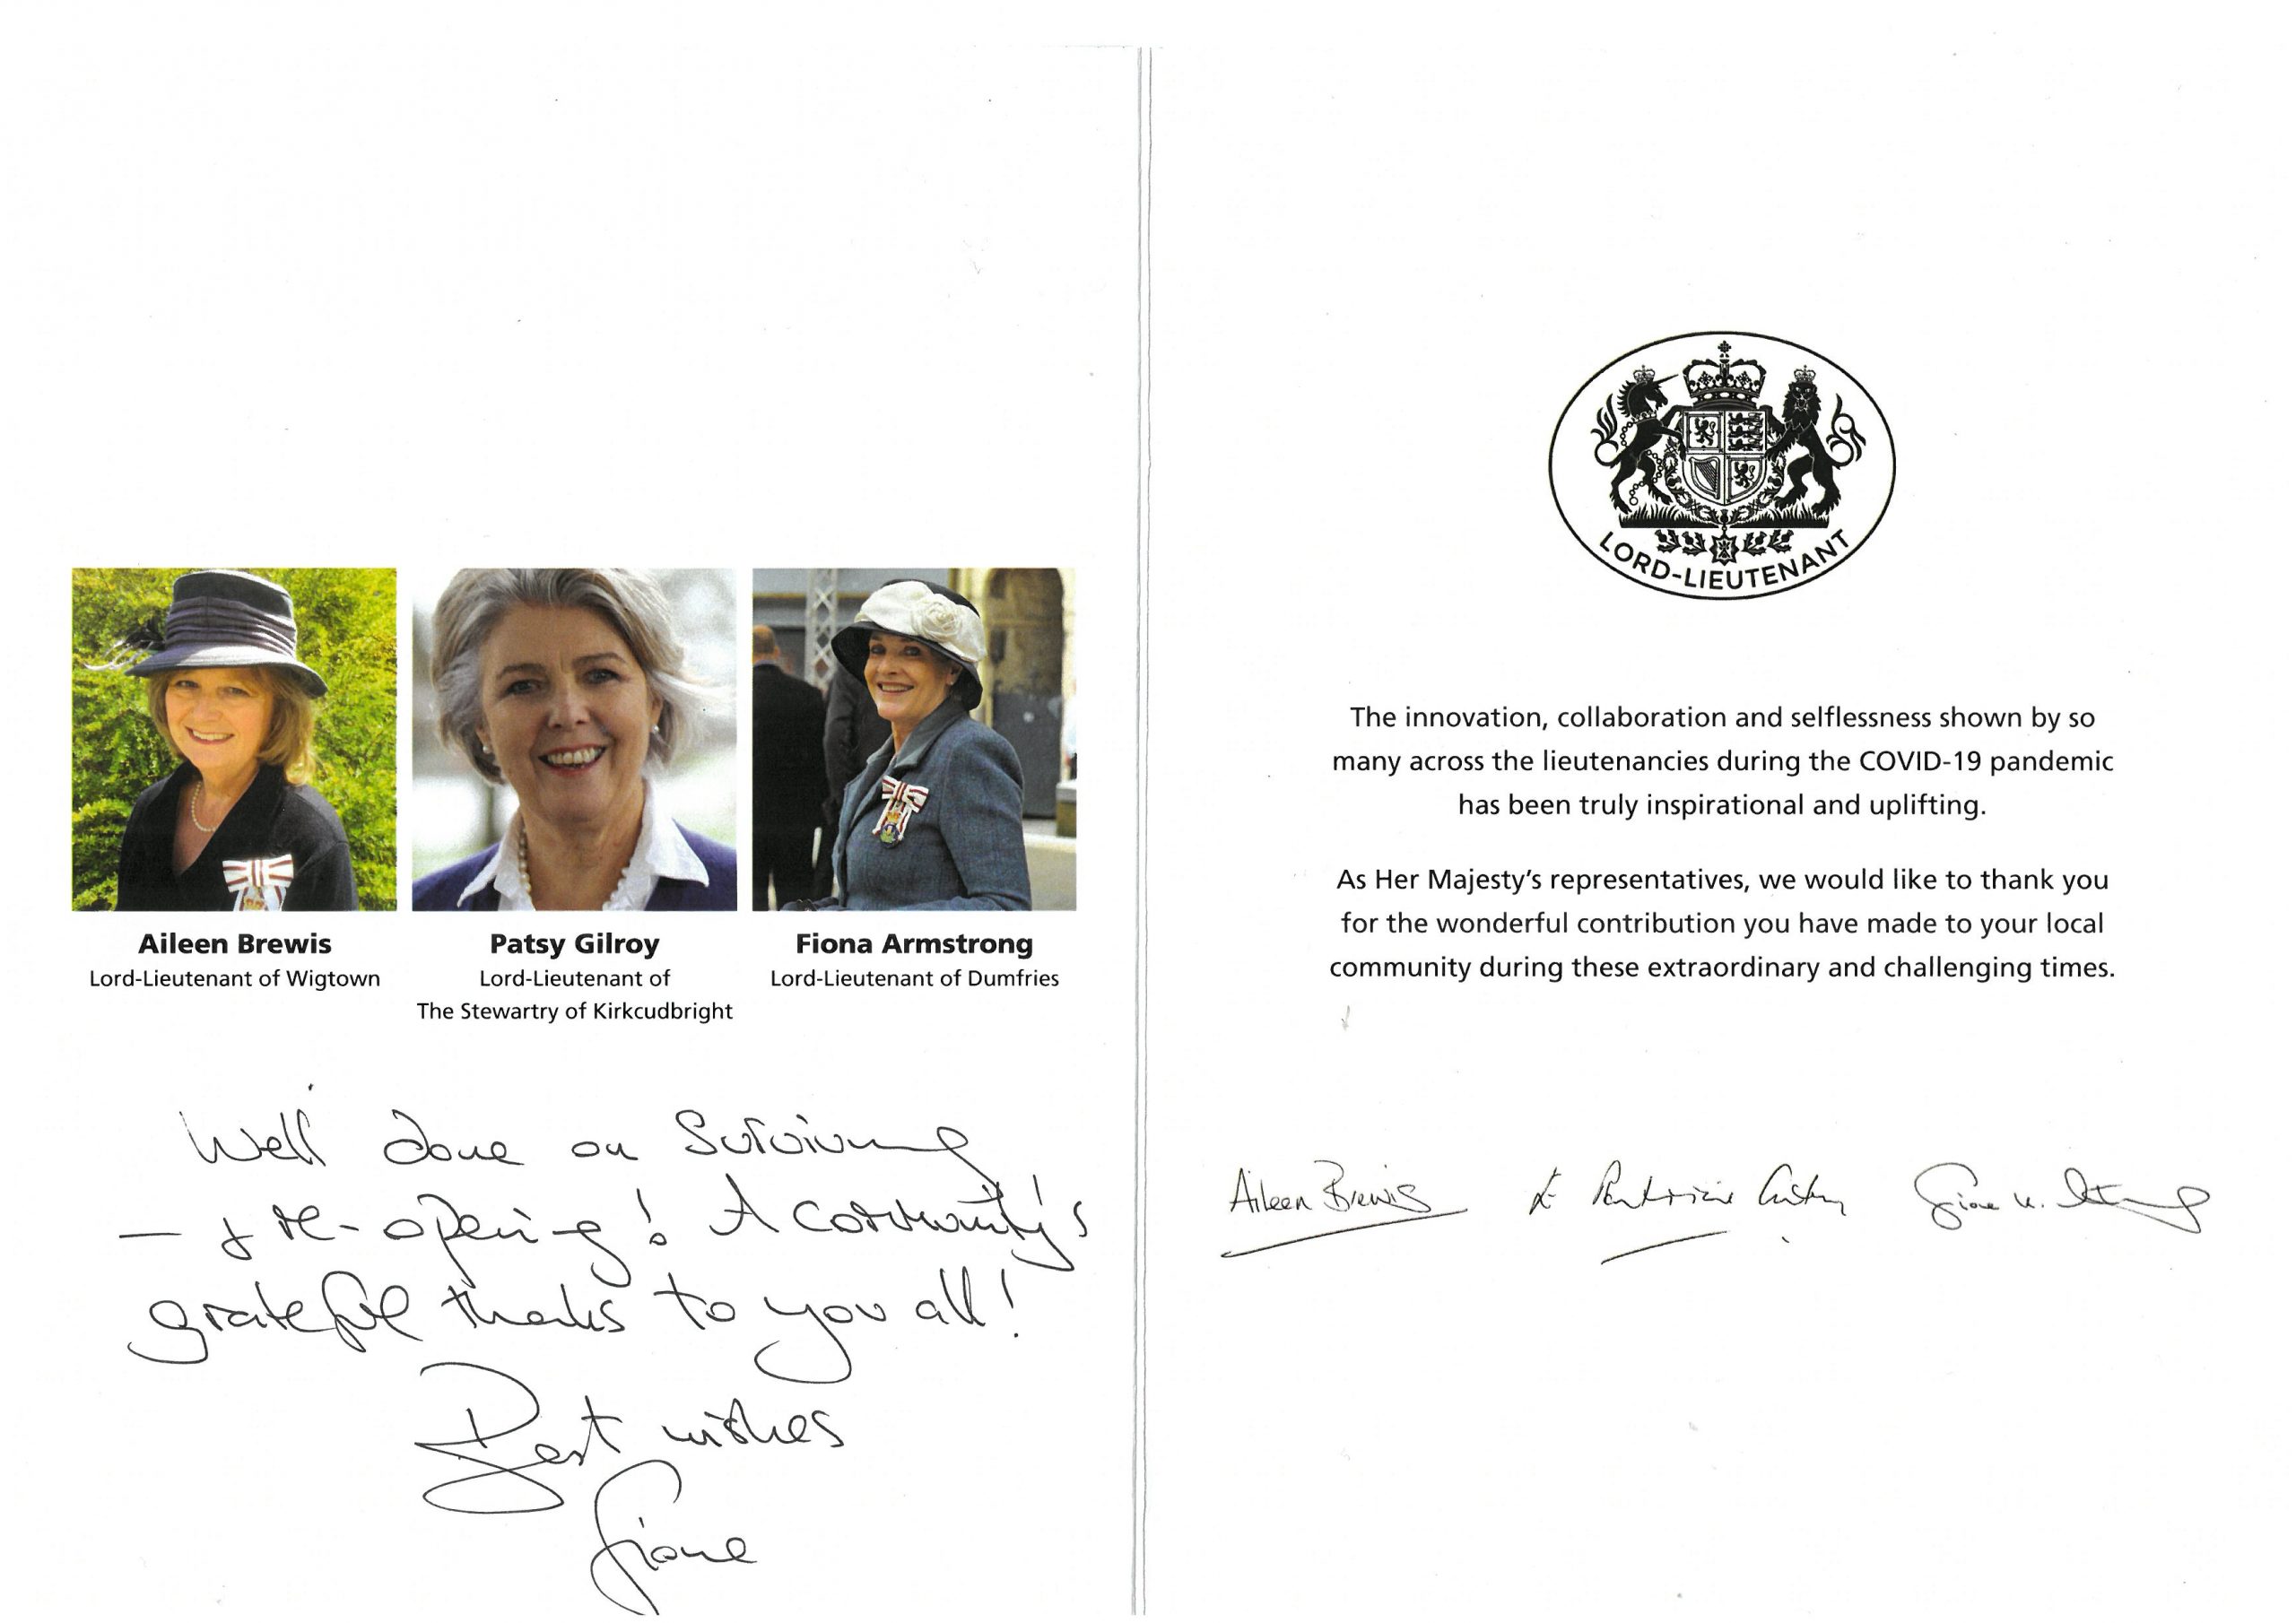 Aileen Brewis
Lord-Lieutenant of Wigtown
Patsy Gilroy
Lord-Lieutenant of
The Stewartry of Kirkcudbright
Fiona Armstrong
Lord-Lieutenant of Dumfries
Well done on surviving
— & re-opening! A community's
grateful thanks to you all!
Best wishes
Fiona
LORD-LIEUTENANT
The innovation, collaboration and selflessness shown by so
many across the lieutenancies during the COVID-19 pandemic
has been truly inspirational and uplifting.
As Her Majesty's representatives, we would like to thank you
for the wonderful contribution you have made to your local
community during these extraordinary and challenging times.
Aileen Brewis
Fiona K. Armstrong